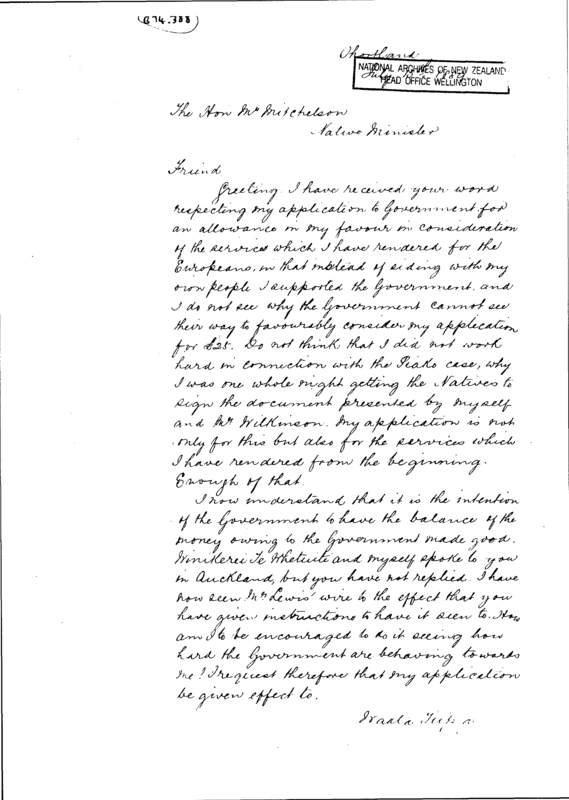 (G 74.388)
Shortland
NATIONAL ARCHIVES OF NEW ZEALAND
HEAD OFFICE WELLINGTON
The Hon Mr Mitchelson
Native Minister
Friend
Greeting. I have received your word
respecting my application to Government for
an allowance in my favour in consideration
of the services which I have rendered for the
Europeans, in that instead of siding with my
own people I supported the Government. and
I do not see why the Government cannot see
their way to favourably consider my application
for £25. Do not think that I did not work
hard in connection with the Piako case, why
I was one whole night getting the Natives to
sign the document presented by myself
and Mr Wilkinson. My application is not
only for this but also for the services which
I have rendered from the beginning.
Enough of that.
I now understand that it is the intention
of the Government to have the balance of the
money owing to the Government made good.
Winikerei Te Whetuiti and myself spoke to you
in Auckland, but you have not replied. I have
now seen Mr Lewis' wire to the effect that you
have given instructions to have it seen to. How
am I to be encouraged to do it seeing how
hard the Government are behaving towards
me? I request therefore that my application
be given effect to.